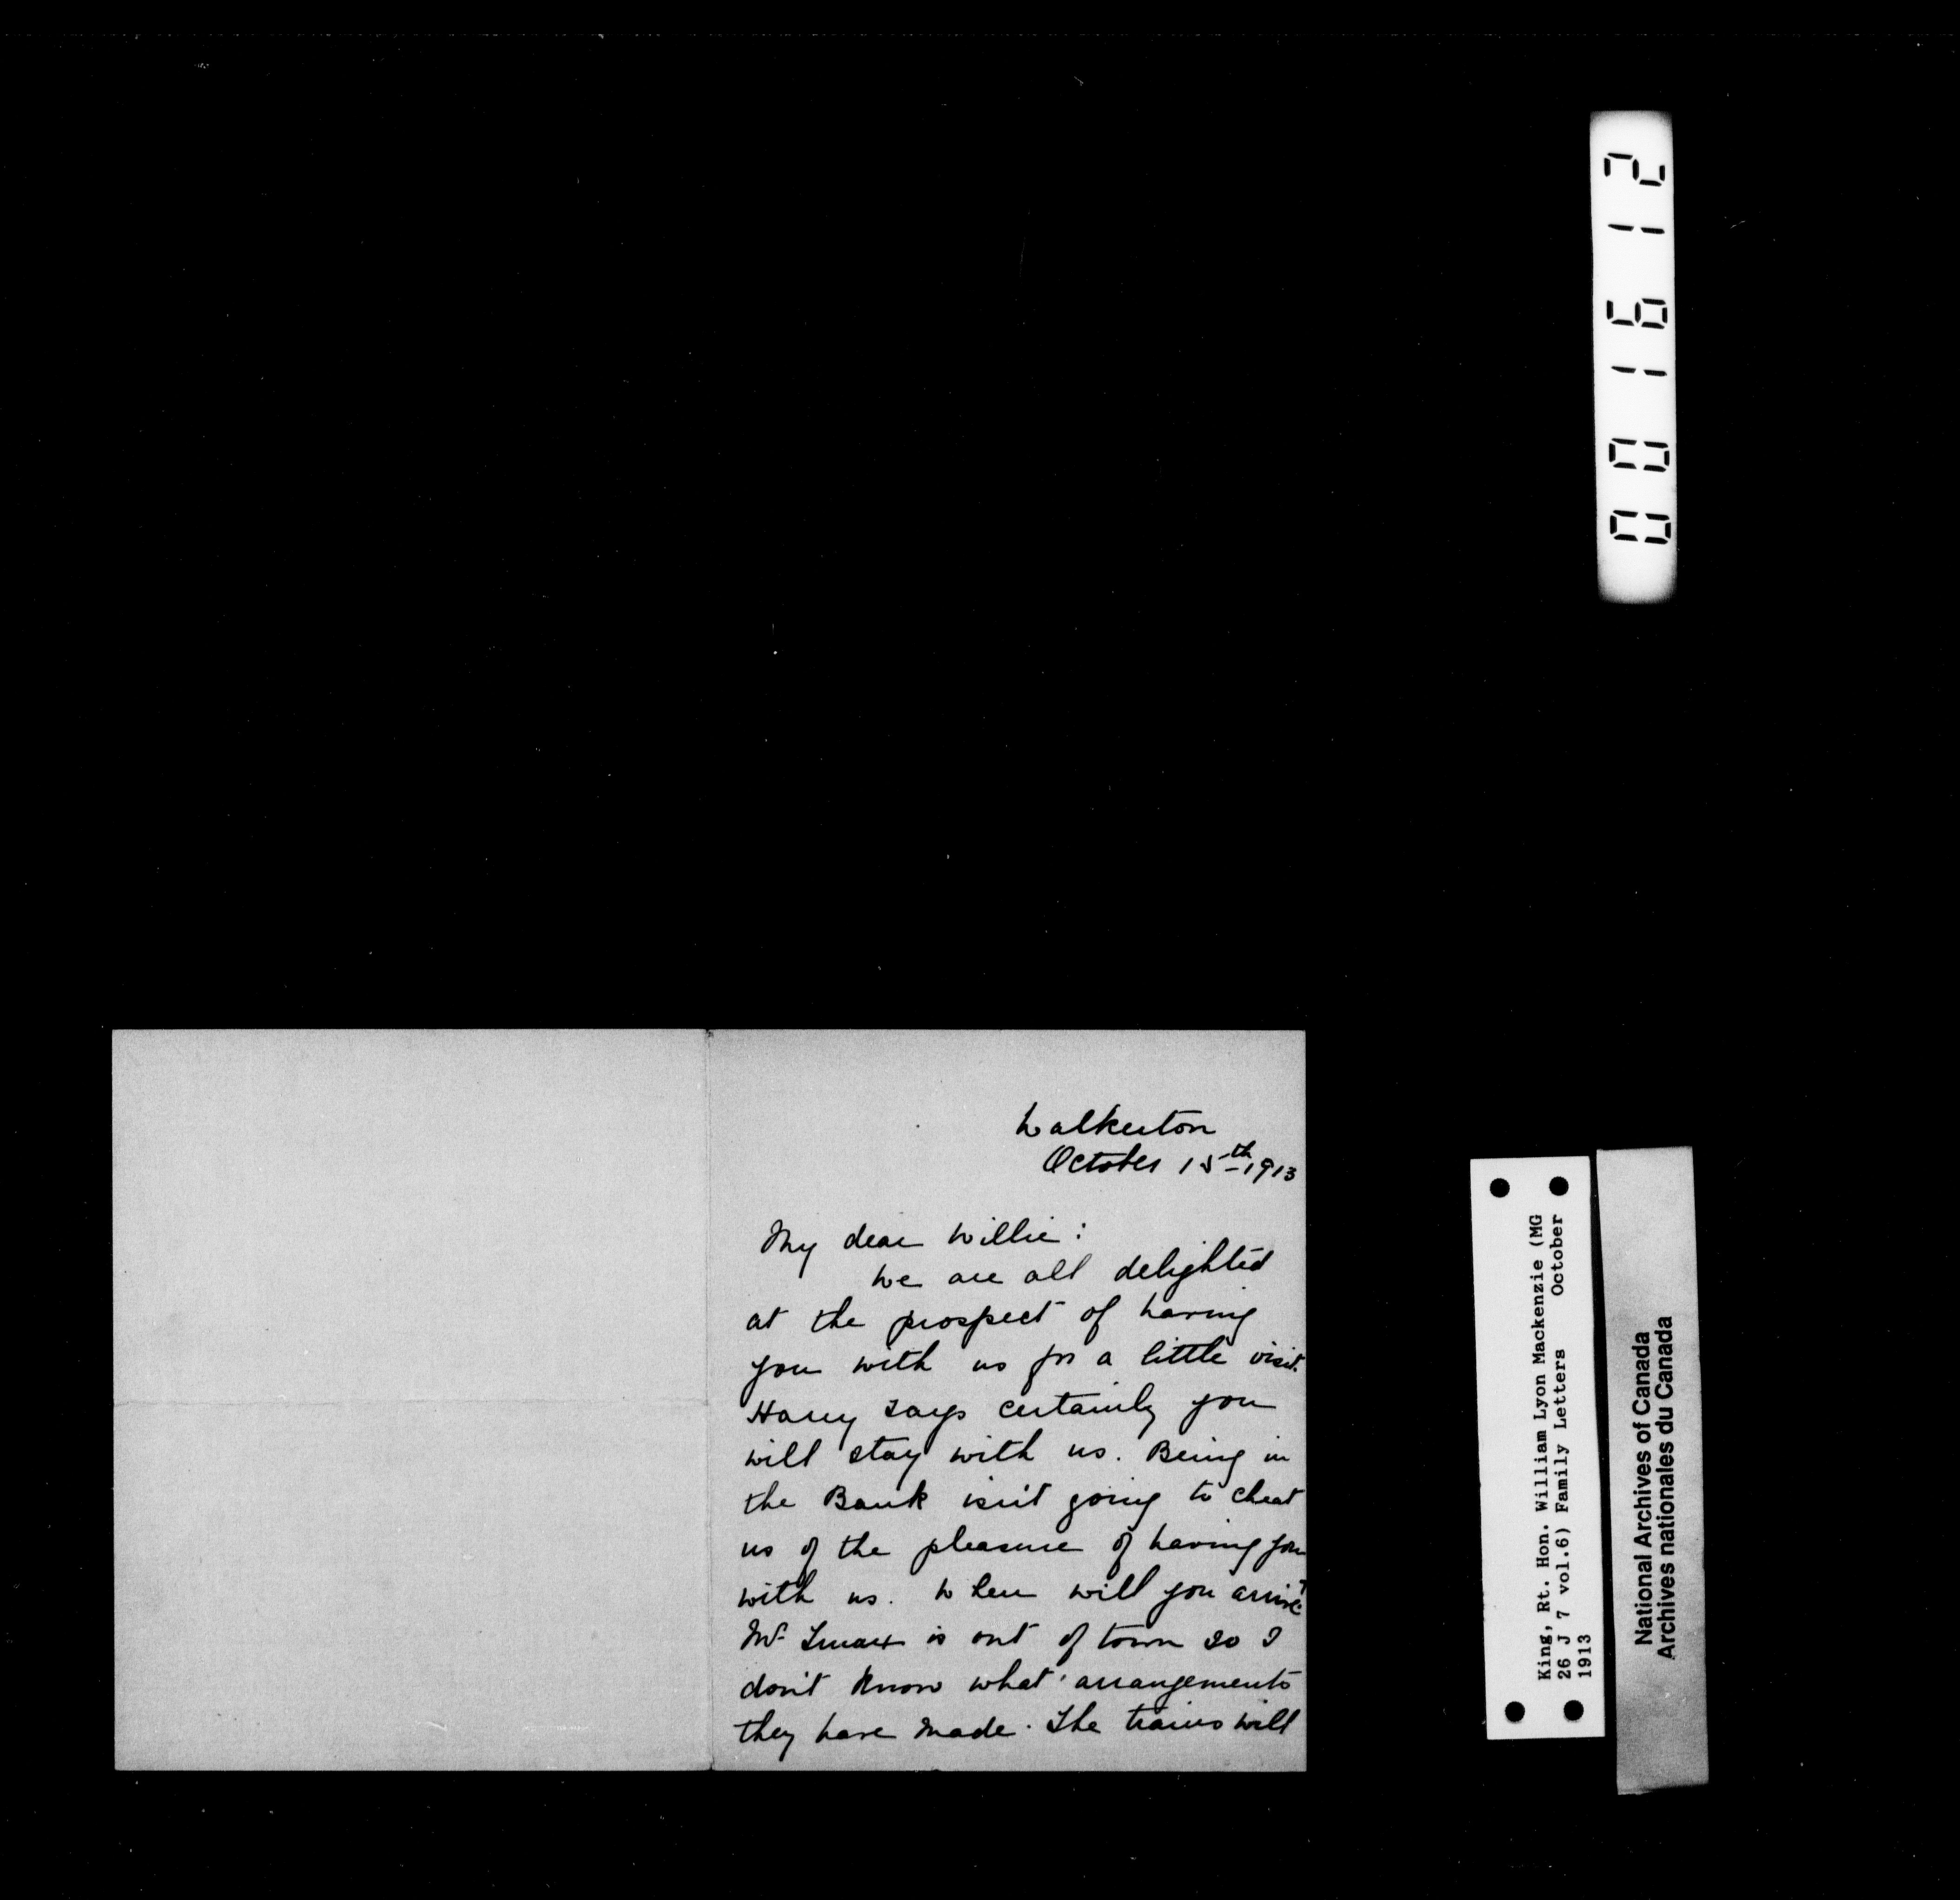 001612
Walkerton
October 15th 1913
My dear Willie:
We are all delighted
at the prospect of having
you with us for a little visit.
Harry says certainly you
will stay with us. Being in
the Bank isn't going to cheat
us of the pleasure of having you
with us. When will you arrive?
Mr is out of town so I
don't know what arrangements
they have made. The trains will
King, Rt. Hon. William Lyon Mackenzie (MG
26 J 7 vol.6) Family Letters October
1913
National Archives of Canada
Archives nationales du Canada